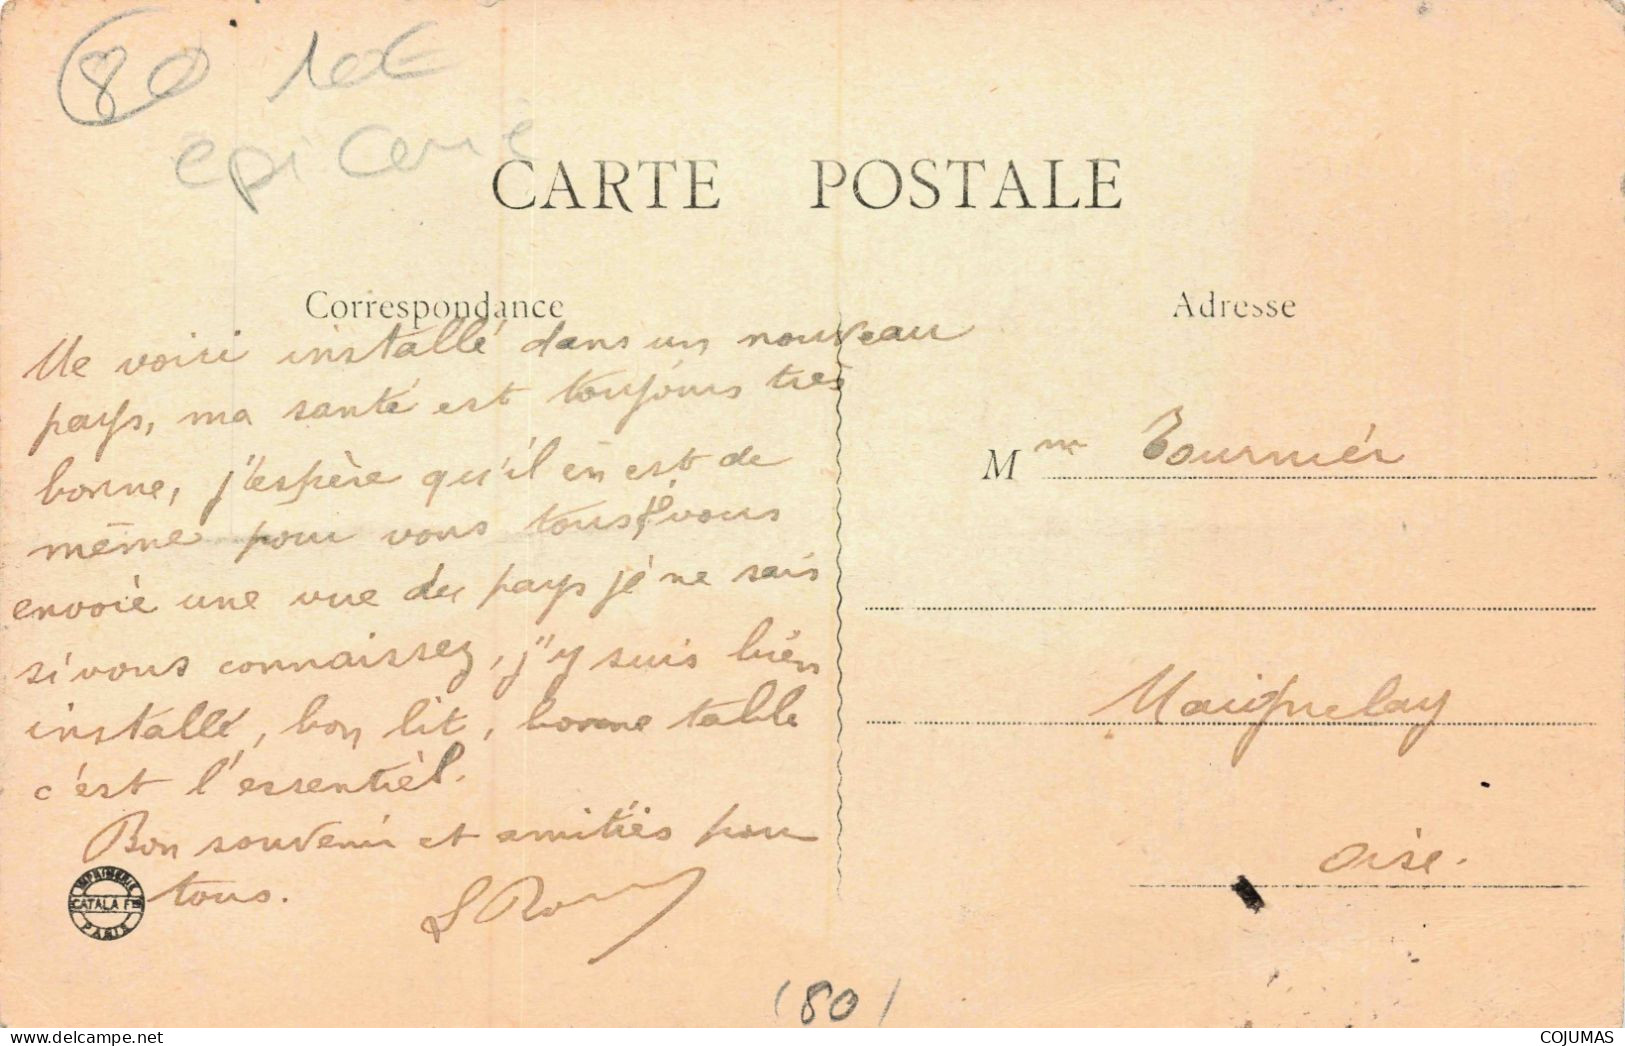 80 10€
épicerie
CARTE POSTALE
Correspondance
Me voici installé dans un nouveau
pays, ma santé est toujours très
bonne, j'espère qu'il en est de
même pour vous tous, je vous
envoie une vue du pays je ne sais
si vous connaissez, j'y suis bien
installé, bon lit, bonne table
c'est l'essentiel.
Bon souvenir et amitiés pour
tous.
IMPRIMERIE
CATALA Fres
PARIS
Adresse
Mme Tournier
Maignelay
Oise.
(80)
COJUMAS